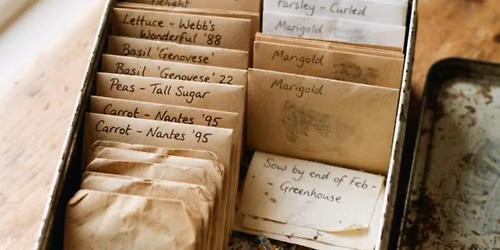 Lettuce - Webb's
Wonderful '88
Basil 'Genovese'
Basil 'Genovese' 22
Peas - Tall Sugar
Carrot - Nantes '95
Carrot - Nantes '95
Parsley - Curled
Marigold
Marigold
Marigold
Sow by end of Feb -
- Greenhouse